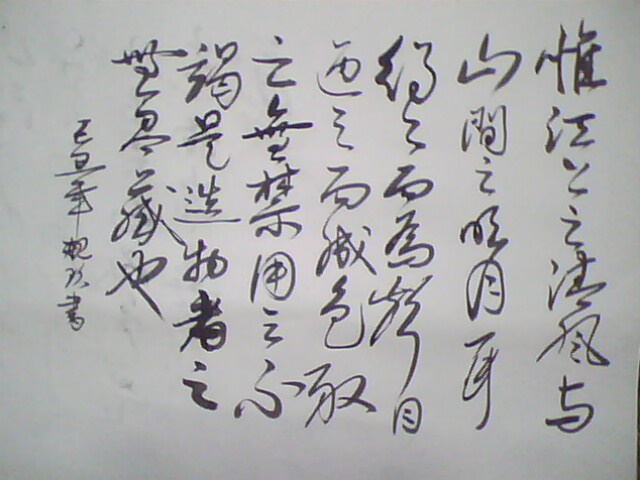 惟江上之清风与
山間之明月耳
得之而為聲目
遇之而成色取
之無禁用之不
竭是造物者之
無尽藏也
己丑年 书